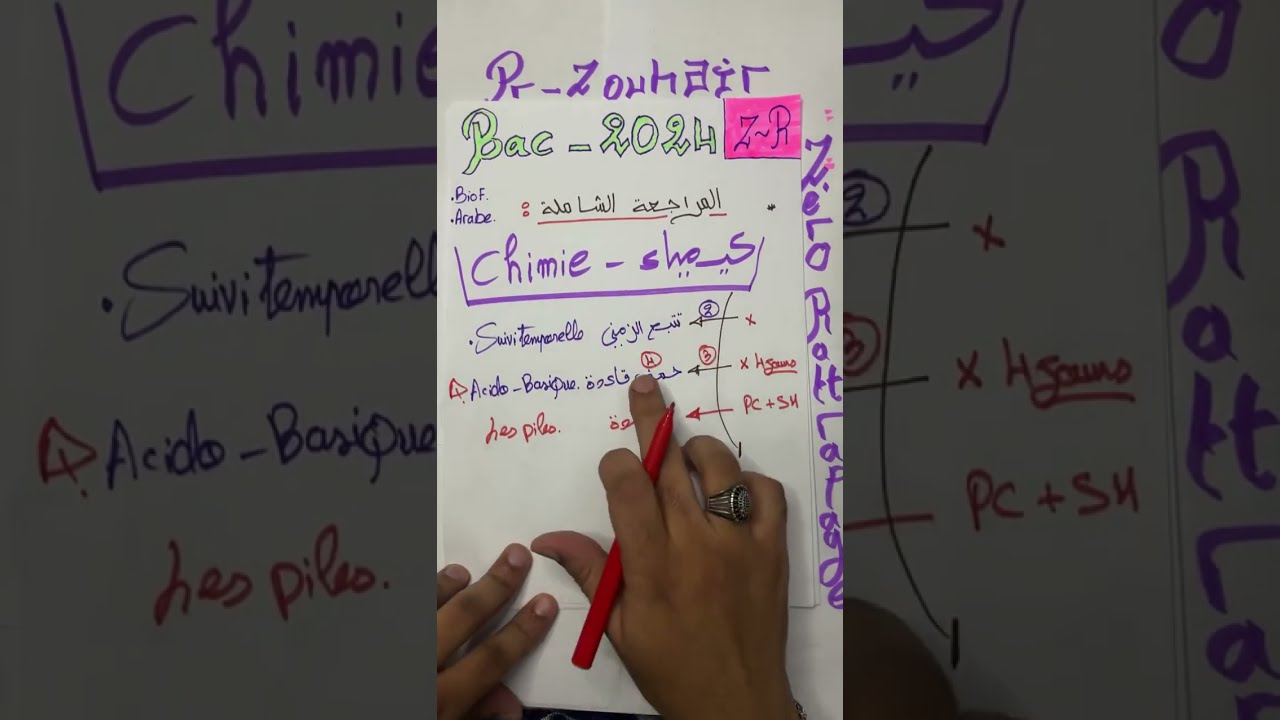 Pr-Zouhair
Bac-2024 Z~R
• BioF.
• Arabe.
* المراجعة الشاملة :
Chimie - كيمياء
• Suivi temporelle تتبع الزمني ② x
Acido-Basique. حمض قاعدة ④ ③ x 4 jours
Les piles. PC + SH
Zéro Rattrapage